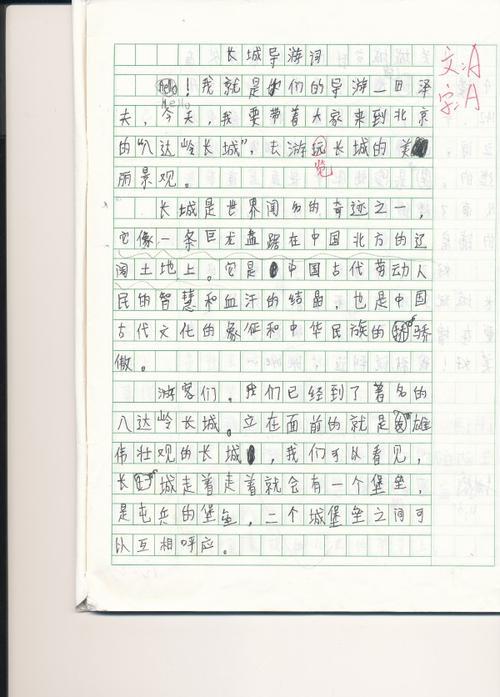 长城导游词
文:A
字:A
Hello！我就是你们的导游一日泽
Hello
夫，今天，我要带着大家来到北京
的"八达岭长城"，去游玩长城的美
览
丽景观。
长城是世界闻名的奇迹之一，
它像一条巨龙盘踞在中国北方的辽
阔土地上。它是中国古代劳动人
民的智慧和血汗的结晶，也是中国
古代文化的象征和中华民族的骄
傲。
游客们，我们已经到了著名的
八达岭长城。立在面前的就是雄
伟壮观的长城，我们可以看见，
长城走着走着就会有一个堡垒，
是屯兵的堡垒，二个城堡垒之间可
以互相呼应。